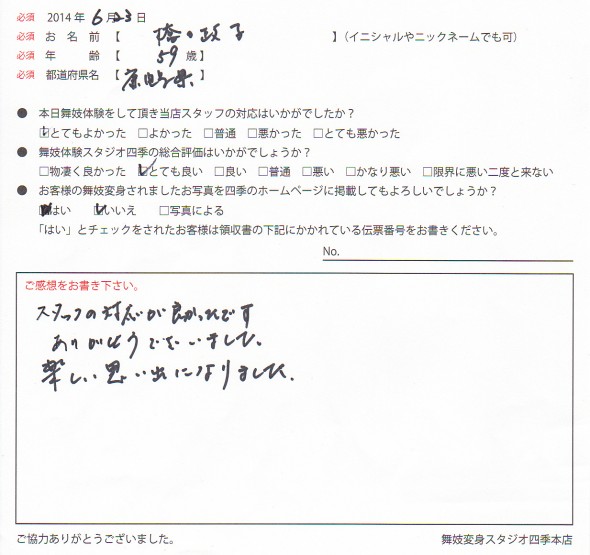 必須 2014年 6月 23日
必須 お名前【 】(イニシャルやニックネームでも可)
必須 年齢【 59 歳】
必須 都道府県名【 県】
● 本日舞妓体験をして頂き当店スタッフの対応はいかがでしたか?
☑とてもよかった □よかった □普通 □悪かった □とても悪かった
● 舞妓体験スタジオ四季の総合評価はいかがでしょうか?
□物凄く良かった ☑とても良い □良い □普通 □悪い □かなり悪い □限界に悪い二度と来ない
● お客様の舞妓変身されましたお写真を四季のホームページに掲載してもよろしいでしょうか?
■はい ☑いいえ □写真による
「はい」とチェックをされたお客様は領収書の下記にかかれている伝票番号をお書きください。
No.
ご感想をお書き下さい。
スタッフの対応が良かったです
ありがとうございました。
楽しい思い出になりました.
ご協力ありがとうございました。 舞妓変身スタジオ四季本店